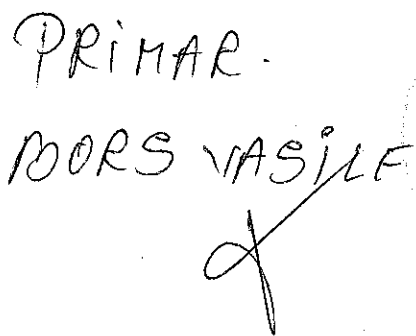 PRIMAR.
BORS VASILE